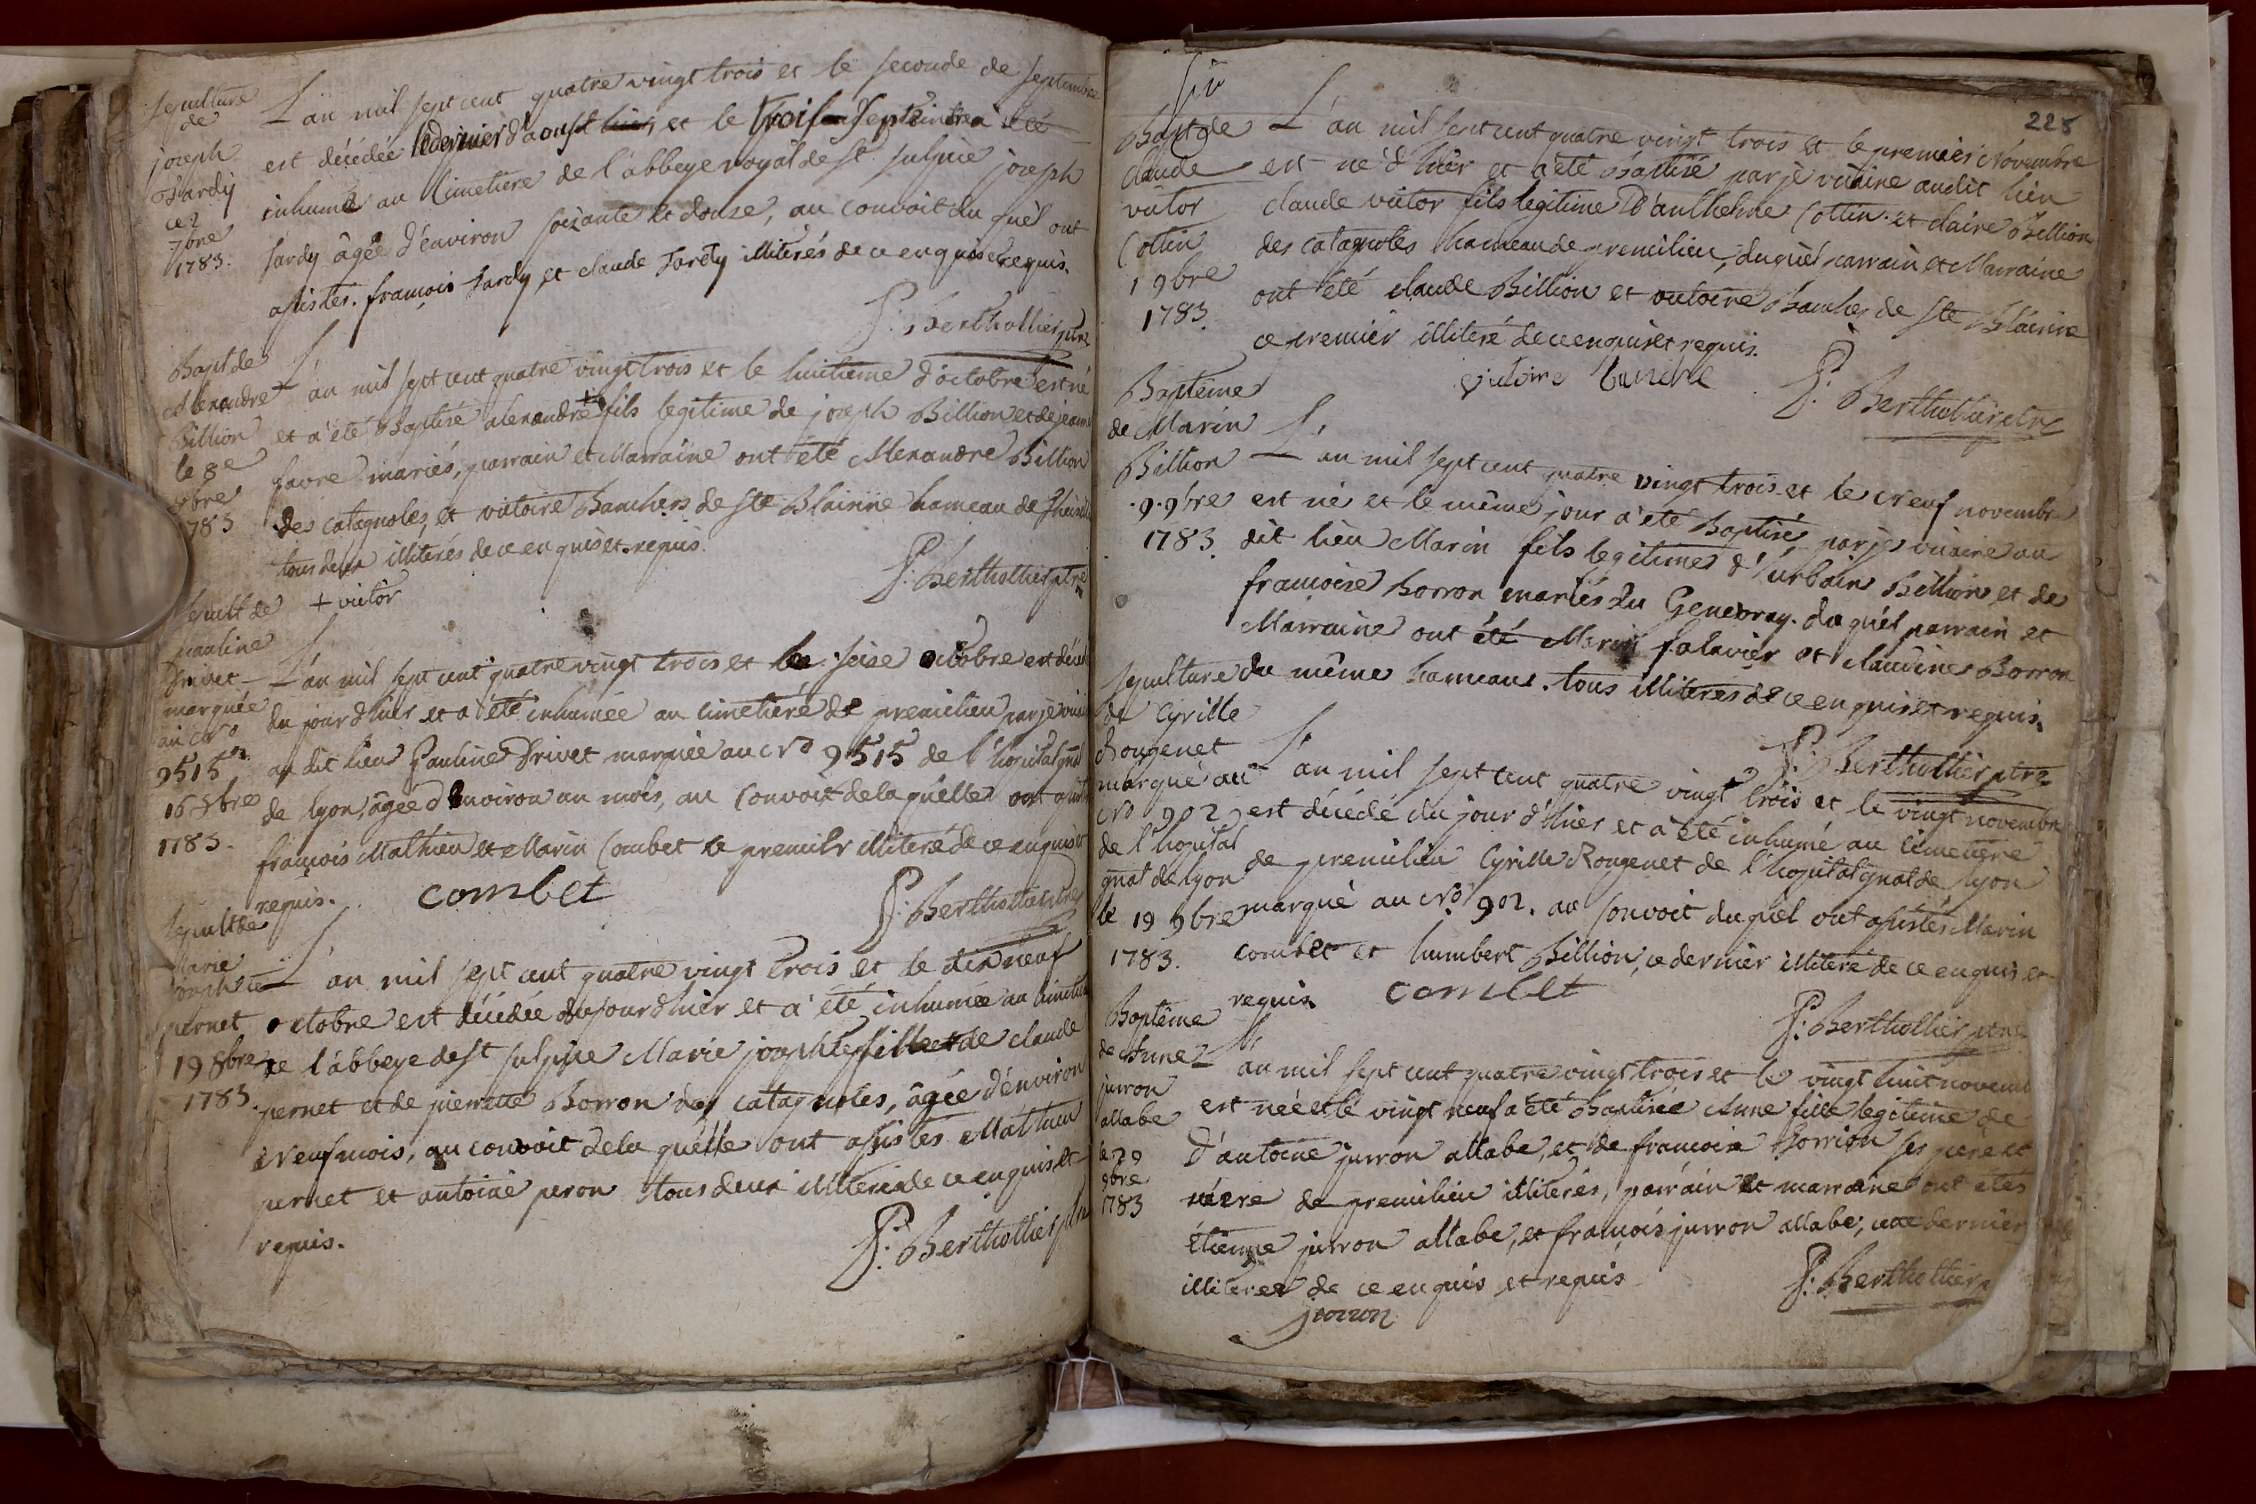 sepulture
de
joseph
hardy
ce 2
7bre
1783.
L'an mil sept cent quatre vingt trois et le seconde de septembre
est décédée le dernier d'aoust hier, et le trois septembre a été
inhumé au cimetiere de l'abbeye royal de st sulpice joseph
hardy âgée d'environ soixante et douse, au convoit du quel ont
assistes. françois hardy et claude hardy illiterés de ce enquis et requis.
P. Berthollier ptre
Bapt de
Alexandre
Billion
le 8e
8bre
1783
L'an mil sept cent quatre vingt trois et le huitieme d'octobre est né
et a été Baptisé alexandre + fils legitime de joseph Billion et de jeanne
favre mariés, parrain et Marraine ont été Alexandre Billion
des catagnoles, et victoire Banchers de ste Blaisine hameau de
tous deux illiterés de ce enquis et requis.
P. Berthollier ptre
+ victor
sepult de
pauline
Drivet
marquée
au No
9515
16 8bre
1783.
L'an mil sept cent quatre vingt trois et le seise octobre est décédé
du jour d'hier et a été inhumée au cimetiere de premilieu par je vicaire
au dit lieu Pauline Drivet marquée au No 9515 de l'hopital gnal
de lyon, âgée d'environ un mois, au convoit de la quelle ont assisté
françois Mathieu et Marin Combet le premier illiteré de ce enquis et
requis.
combet
P. Berthollier ptre
sepult de
Marie
josephte
pernet
19 8bre
1783
L'an mil sept cent quatre vingt trois et le dix neuf
octobre est décédée du jour d'hier et a été inhumée au cimetiere
de l'abbeye de st sulpise Marie josephte fille de claude
pernet et de pierrette Borron des catagnoles, âgée d'environ
Neuf mois, au convoit de la quelle ont assistes Mathieu
pernet et antoine peron tous deux illiterés de ce enquis et
requis.
P. Berthollier ptre
228
Bapt de
claude
victor
Cottin
1 9bre
1783.
L'an mil sept cent quatre vingt trois et le premier Novembre
est né d'hier et a été Baptisé par je vicaire audit lieu
claude victor fils legitime D'anthelme Cottin et claire Billion
des catagnoles hameau de premilieu, du quel parrain et Marraine
ont été claude Billion et victoire Banches de ste Blaisine
ce premier illiteré de ce enquis et requis.
victoire banche
P. Berthollier ptre
Baptême
de Marin
Billion
9. 9bre
1783.
L'an mil sept cent quatre vingt trois et le Neuf novembre
est né et le même jour a été Baptisé par je vicaire au
dit lieu Marin fils legitime d'urbain Billion et de
françoise borron mariés du Genevray. du quel parrain et
Marraine ont été Marin falavier et claudine Borron
du même hameau. tous illiterés de ce enquis et requis.
P. Berthollier ptre
sepulture
de Cyrille
Rougenet
marqué au
No 902
de l'hopital
gnal de lyon
le 19 9bre
1783.
L'an mil sept cent quatre vingt trois et le vingt novembre
est décédé du jour d'hier et a été inhumé au cimetiere
de premilieu Cyrille Rougenet de l'hopital gnal de lyon
marqué au No 902. au Convoit du quel ont assistés Marin
combet et humbert Billion, ce dernier illiteré de ce enquis et
requis.
combet
P. Berthollier ptre
Baptême
de Anne
jurron
allabe
le 29
9bre
1783
L'an mil sept cent quatre vingt trois et le vingt huit novembre
est née et le vingt neuf a été Baptisée Anne fille legitime de
D'antoine jurron allabe, et de françoise borrion ses père et
mère de premilieu illiterés, parrain et marraine ont etés
étienne jurron allabe, et françois jurron allabe, dernier
illiteres de ce enquis et requis
P. Berthollier
jurron